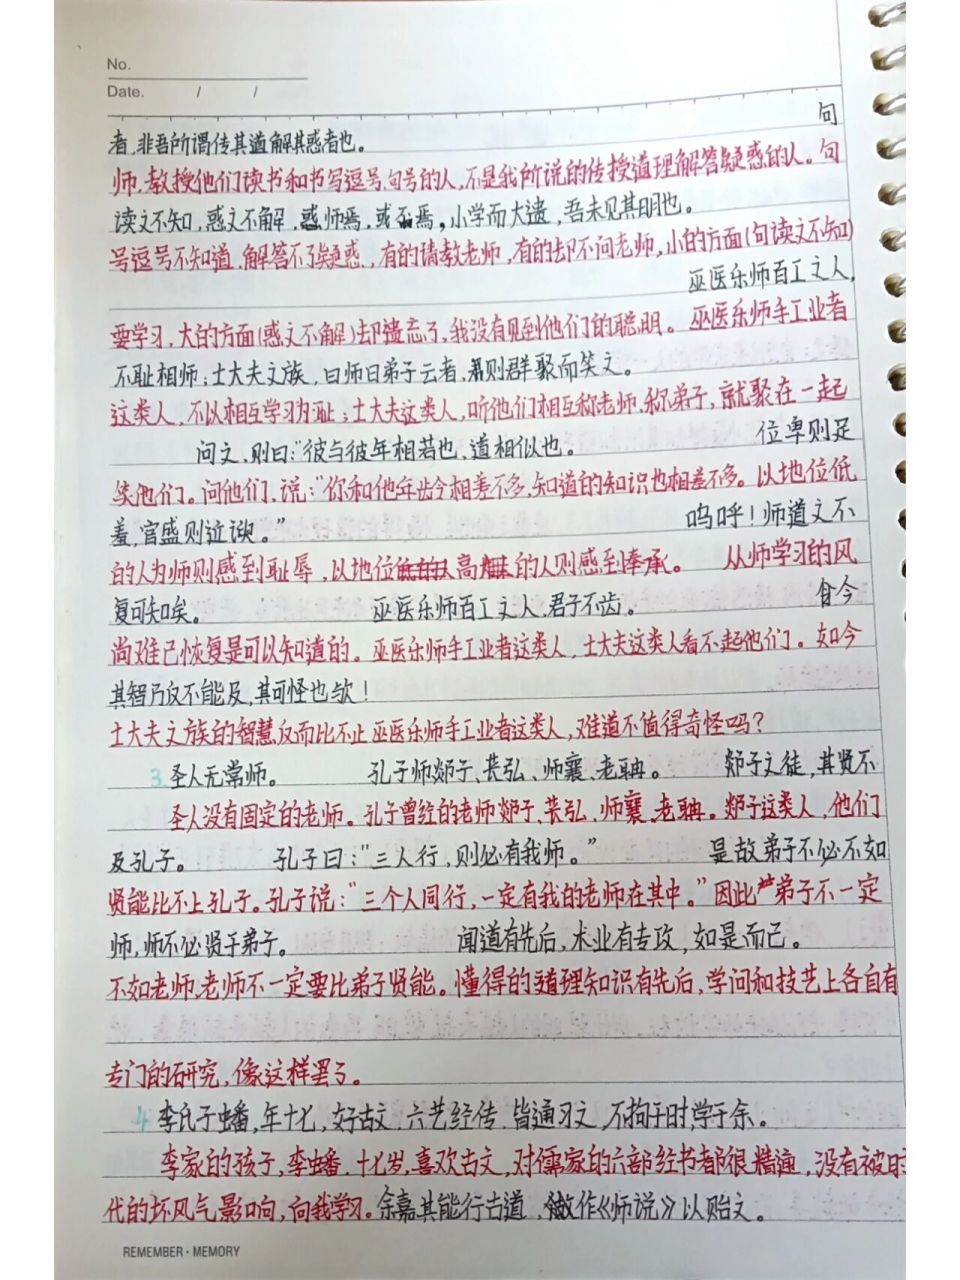 No.
Date. / /
句
者,非吾所谓传其道解其惑者也。
师,教授他们读书和书写逗号,句号的人,不是我所说的传授道理解答疑惑的人。句
读之不知,惑之不解,惑师焉,或不焉,小学而大遗,吾未见其明也。
号逗号不知道,解答不了疑惑,有的请教老师,有的却不问老师,小的方面(句读之不知)
巫医乐师百工之人,
要学习,大的方面(惑之不解)却遗忘了,我没有见到他们的聪明。巫医乐师手工业者
不耻相师;士大夫之族,曰师曰弟子云者,则群聚而笑之。
这类人,不以相互学习为耻;士大夫这类人,听他们相互称老师,称弟子,就聚在一起
问之,则曰:“彼与彼年相若也,道相似也。 位卑则足
笑他们。问他们,说:“你和他年龄今相差不多,知道的知识也相差不多。以地位低
羞,官盛则近谀。” 呜呼!师道之不
的人为师则感到耻辱,以地位高的人则感到奉承。 从师学习的风
复可知矣。 巫医乐师百工之人,君子不齿。 今
尚难已恢复是可以知道的。巫医乐师手工业者这类人,士大夫这类人看不起他们。如今
其智乃反不能及,其可怪也欤!
士大夫之族的智慧反而比不止巫医乐师手工业者这类人,难道不值得奇怪吗?
3.圣人无常师。 孔子师郯子、苌弘、师襄、老聃。 郯子之徒,其贤不
圣人没有固定的老师。孔子曾经的老师郯子、苌弘、师襄、老聃。郯子这类人,他们
及孔子。 孔子曰:“三人行,则必有我师。” 是故弟子不必不如
贤能比不上孔子。孔子说:“三个人同行,一定有我的老师在其中。”因此弟子不一定
师,师不必贤于弟子。 闻道有先后,术业有专攻,如是而已。
不如老师,老师不一定要比弟子贤能。懂得的道理知识有先后,学问和技艺上各自有
专门的研究,像这样罢了。
4 李氏子蟠,年十七,好古文,六艺经传,皆通习之,不拘于时,学于余。
李家的孩子,李蟠,十七岁,喜欢古文,对儒家的六部经书都很精通,没有被时
代的坏风气影响,向我学习。余嘉其能行古道,作《师说》以贻之。
REMEMBER · MEMORY